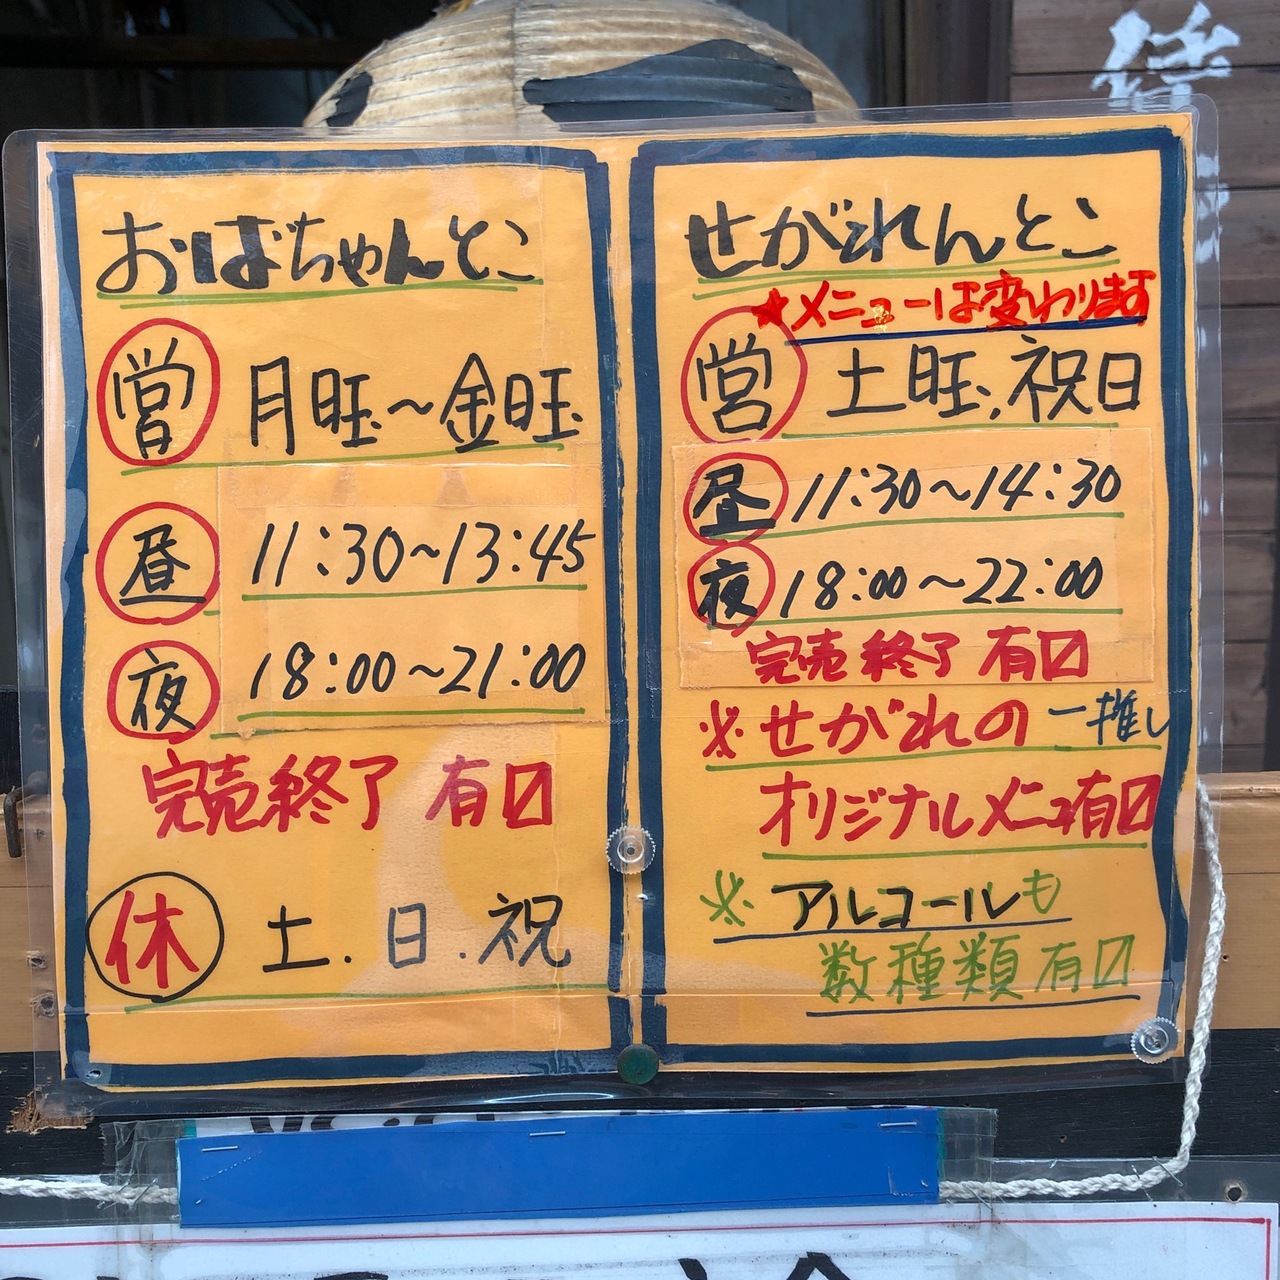 おばちゃんとこ
営 月旺〜金旺
昼 11:30〜13:45
夜 18:00〜21:00
完売終了 有〼
休 土.日.祝
せがれんとこ
★メニューは変わります
営 土旺、祝日
昼 11:30〜14:30
夜 18:00〜22:00
完売終了 有〼
※せがれの一推し
オリジナルメニュー有〼
※アルコールも
数種類有〼